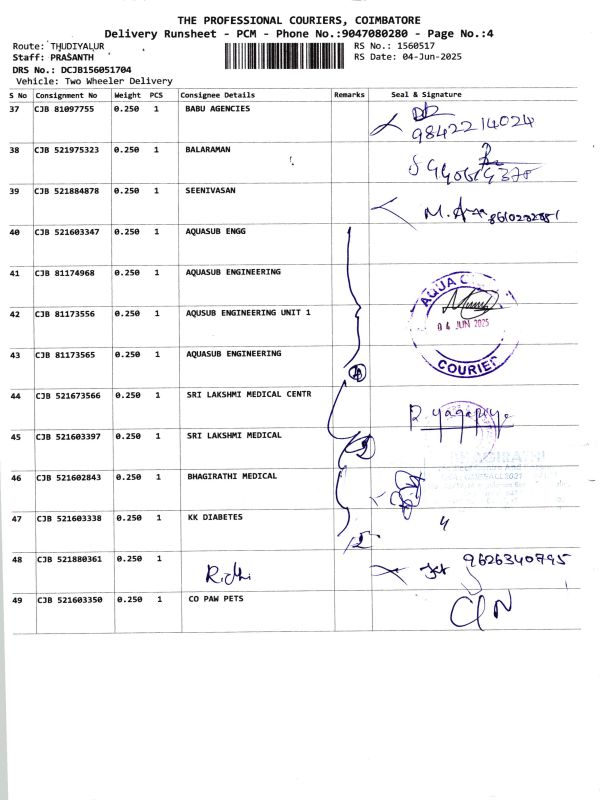 THE PROFESSIONAL COURIERS, COIMBATORE
Delivery Runsheet - PCM - Phone No.:9047080280 - Page No.:4
Route: THUDIYALUR RS No.: 1560517
Staff: PRASANTH RS Date: 04-Jun-2025
DRS No.: DCJB156051704
Vehicle: Two Wheeler Delivery
S No Consignment No Weight PCS Consignee Details Remarks Seal & Signature
37 CJB 81097755 0.250 1 BABU AGENCIES
9842214024
38 CJB 521975323 0.250 1 BALARAMAN
39 CJB 521884878 0.250 1 SEENIVASAN
40 CJB 521603347 0.250 1 AQUASUB ENGG
41 CJB 81174968 0.250 1 AQUASUB ENGINEERING
42 CJB 81173556 0.250 1 AQUSUB ENGINEERING UNIT 1
04 JUN 2025
43 CJB 81173565 0.250 1 AQUASUB ENGINEERING
COURIER
4
44 CJB 521673566 0.250 1 SRI LAKSHMI MEDICAL CENTR
45 CJB 521603397 0.250 1 SRI LAKSHMI MEDICAL
46 CJB 521602843 0.250 1 BHAGIRATHI MEDICAL
47 CJB 521603338 0.250 1 KK DIABETES
48 CJB 521880361 0.250 1 9626340795
49 CJB 521603350 0.250 1 CO PAW PETS